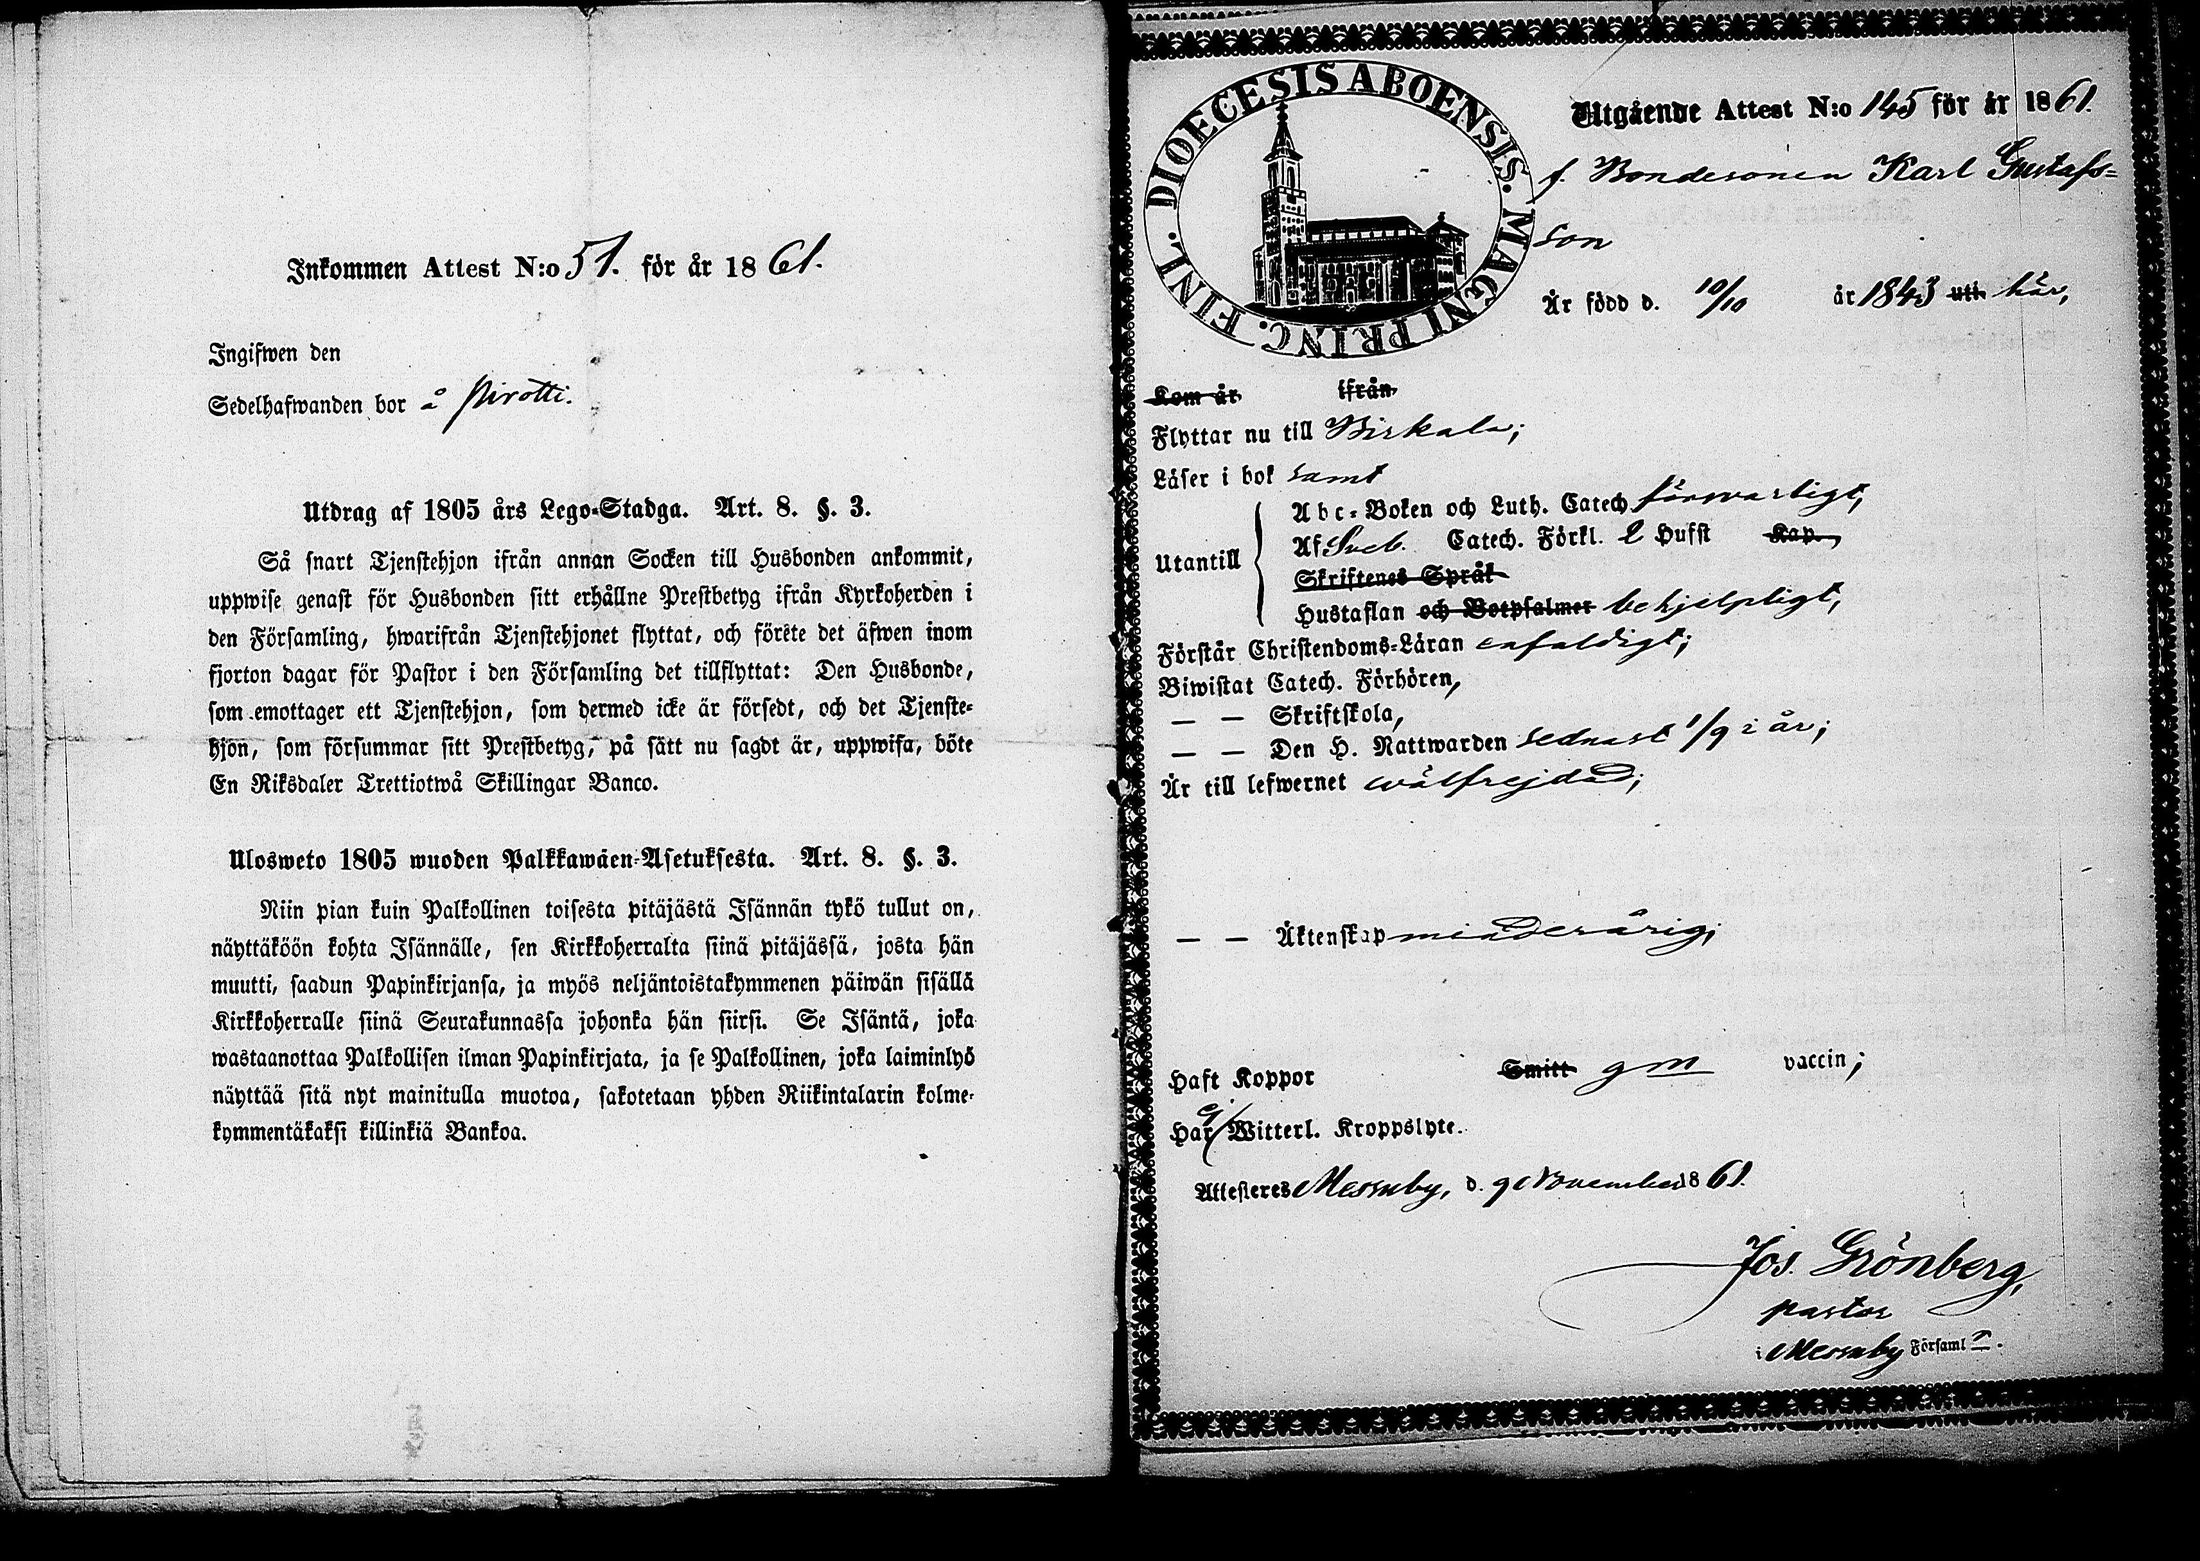 Inkommen Attest N:o 51. för år 1861.
Ingifwen den
Sedelhafwanden bor å Pirotti.
Utdrag af 1805 års Lego-Stadga. Art. 8. §. 3.
Så snart Tjenstehjon ifrån annan Socken till Husbonden ankommit,
uppwise genast för Husbonden sitt erhållne Prestbetyg ifrån Kyrkoherden i
den Församling, hwarifrån Tjenstehjonet flyttat, och förete det äfwen inom
fjorton dagar för Pastor i den Församling det tillflyttat: Den Husbonde,
som emottager ett Tjenstehjon, som dermed icke är försedt, och det Tjenste-
hjon, som försummar sitt Prestbetyg, på sätt nu sagdt är, uppwisa, böte
En Riksdaler Trettiotwå Skillingar Banco.
Ulosweto 1805 wuoden Palkkawäen-Asetuksesta. Art. 8. §. 3.
Niin pian kuin Palkollinen toisesta pitäjästä Isännän tykö tullut on,
näyttäköön kohta Isännälle, sen Kirkkoherralta siinä pitäjässä, josta hän
muutti, saadun Papinkirjansa, ja myös neljäntoistakymmenen päiwän sisällä
Kirkkoherralle siinä Seurakunnassa johonka hän siirsi. Se Isäntä, joka
wastaanottaa Palkollisen ilman Papinkirjata, ja se Palkollinen, joka laiminlyö
näyttää sitä nyt mainitulla muotoa, sakotetaan yhden Riikintalarin kolme-
kymmentäkaksi killinkiä Bankoa.
DIOECESIS ABOENSIS. MAGNI PRINC. FINL.
Utgående Attest N:o 145 för år 1861.
f. Bondesonen Karl Gustafs-
son
Är född d. 10/10 år 1843 uti här,
Kom år ifrån
Flyttar nu till Birkala;
Läser i bok samt
Utantill
Abc-Boken och Luth. Catech. förswarligt,
Af Sveb. Catech. Förkl. 2 Hufst Kap.,
Skriftenes Språk
Hustaflan och Botpsalmer behjelpligt,
Förstår Christendoms-Läran enfaldigt;
Biwistat Catech. Förhören,
— — Skriftskola,
— — Den H. Nattwarden sednast 1/9 i år;
Är till lefwernet wälfrejdad;
— — Äktenskap minderårig;
Haft Koppor Smitt gm vaccin;
Har ej Witterl. Kroppslyte.
Attesteres Messuby, d. 9 November 1861.
Jos. Grönberg,
pastor
i Messuby Församl